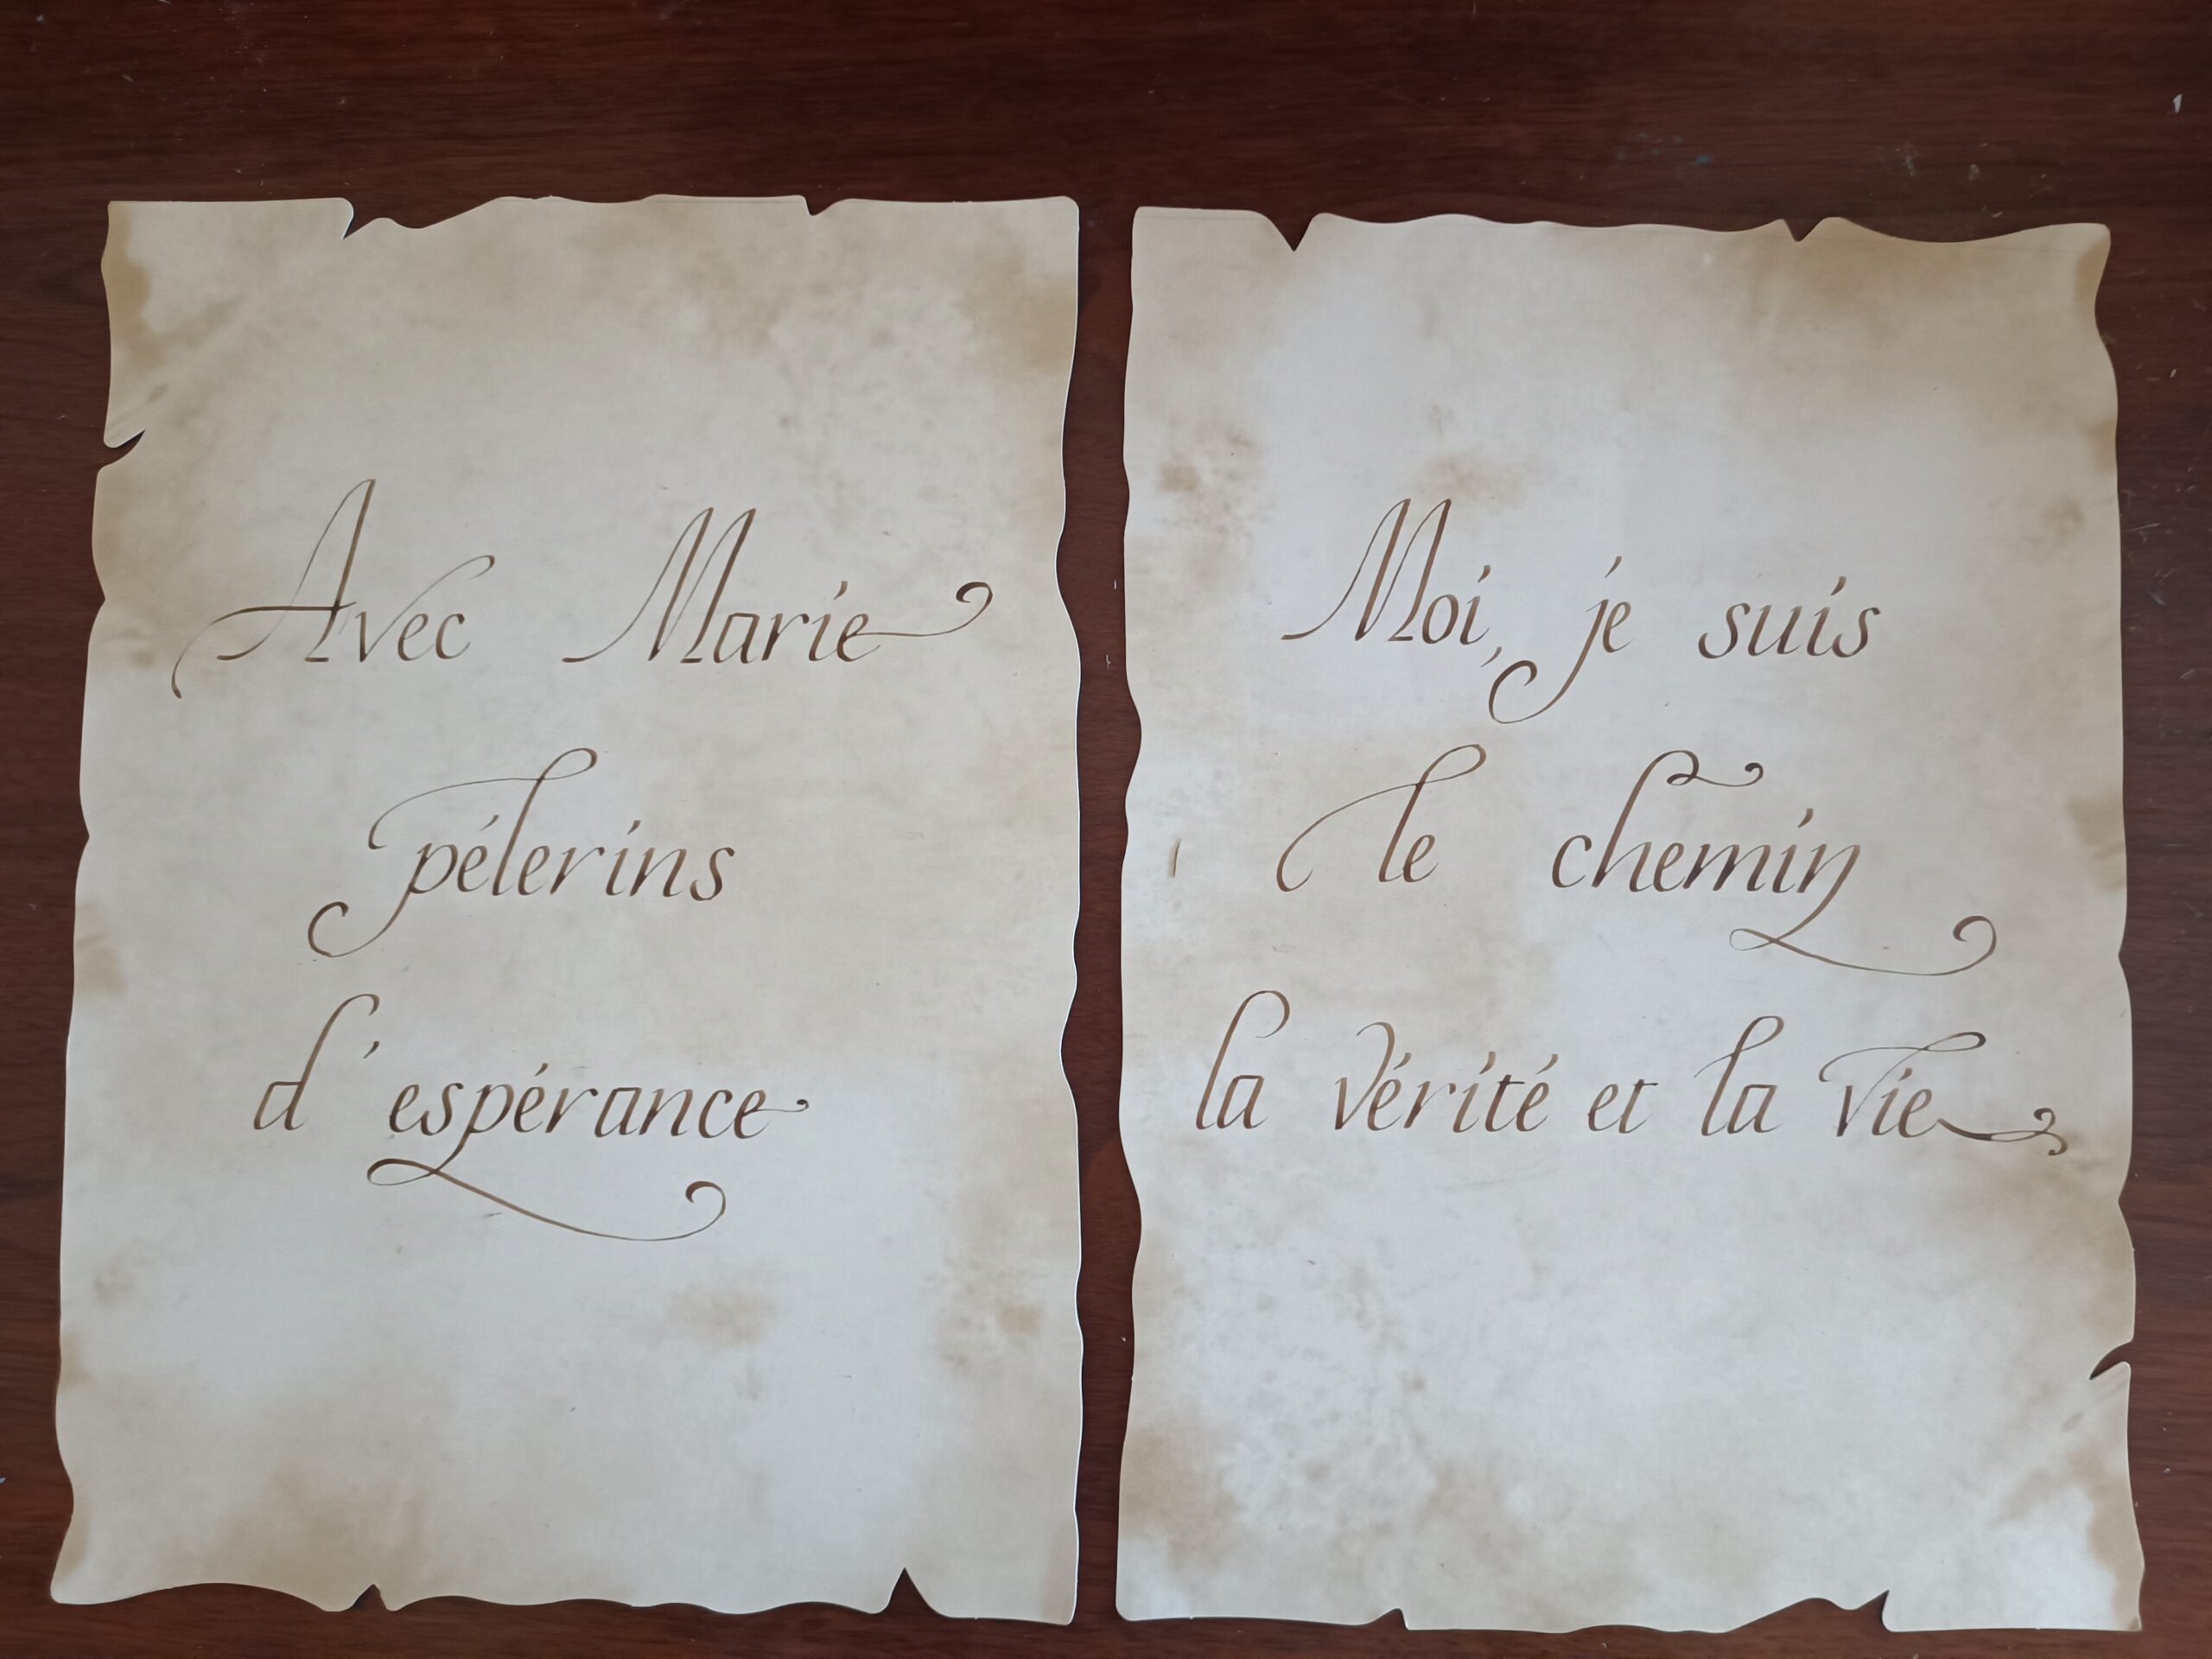 Avec Marie
pélerins
d'espérance
Moi, je suis
le chemin
la vérité et la vie